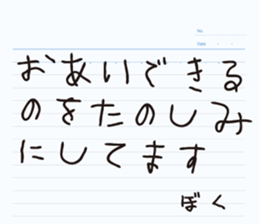 No.
Date ・ ・
おあいできる
のをたのしみ
にしてます
ぼく